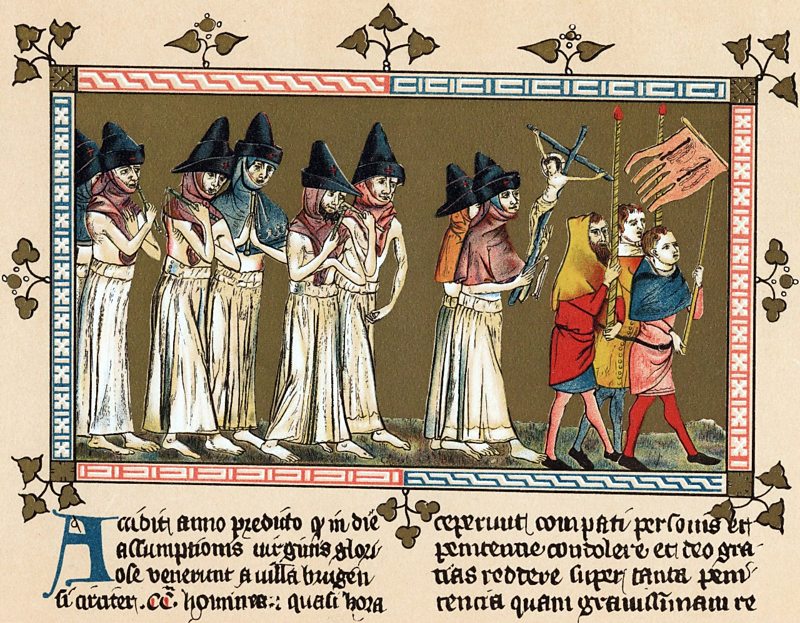 Accidit anno predicto q in die
assumptionis uirginis glori
ose venerunt a uilla brugen
si circiter .CC. homines: quasi hora
ceperunt compati personis et
penitentie condolere et deo gra-
tias reddere super tanta peni
tencia quam grauissimam re